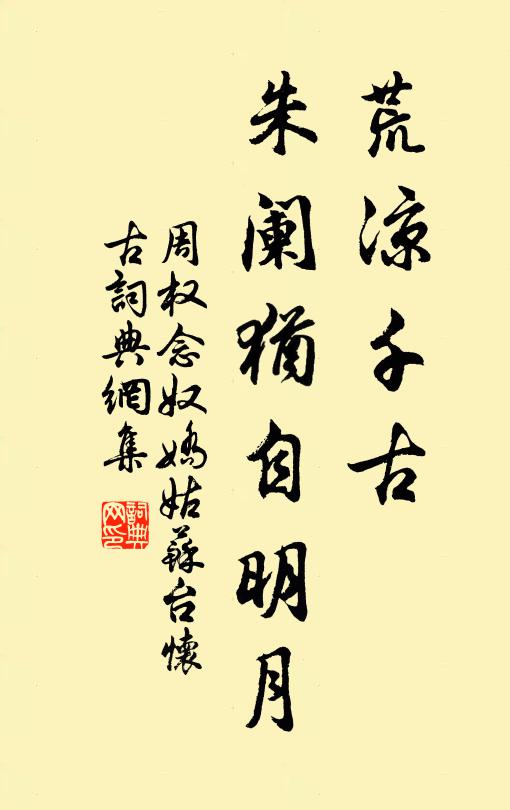 荒涼千古
朱阑猶自明月
周权念奴嬌姑蘇台懷
古詞典網集
詞典
网印